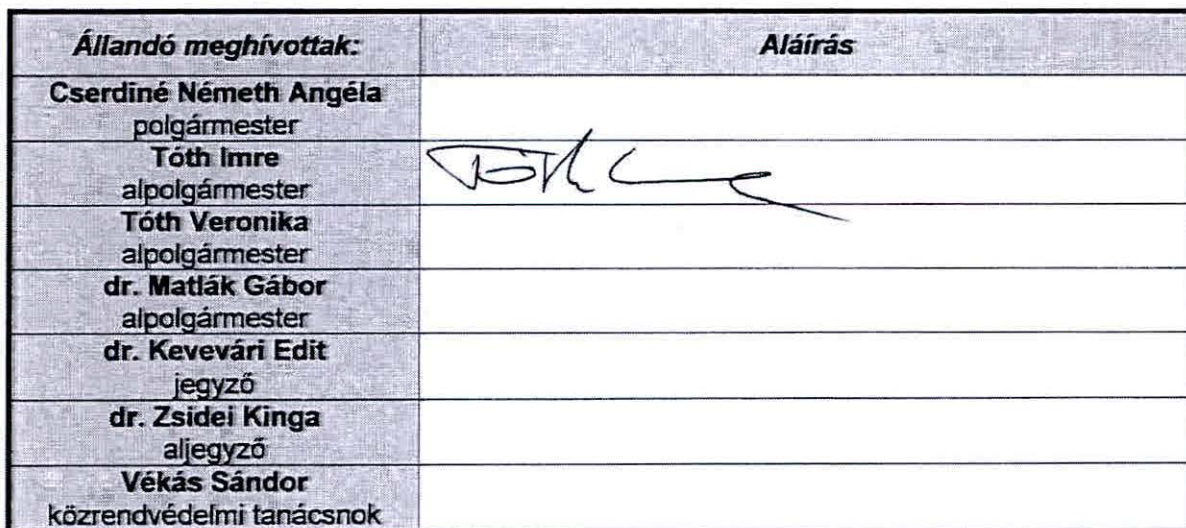 Állandó meghívottak: Aláírás
Cserdiné Németh Angéla
polgármester
Tóth Imre
alpolgármester
Tóth
Tóth Veronika
alpolgármester
dr. Matlák Gábor
alpolgármester
dr. Kevevári Edit
jegyző
dr. Zsidei Kinga
aljegyző
Vékás Sándor
közrendvédelmi tanácsnok